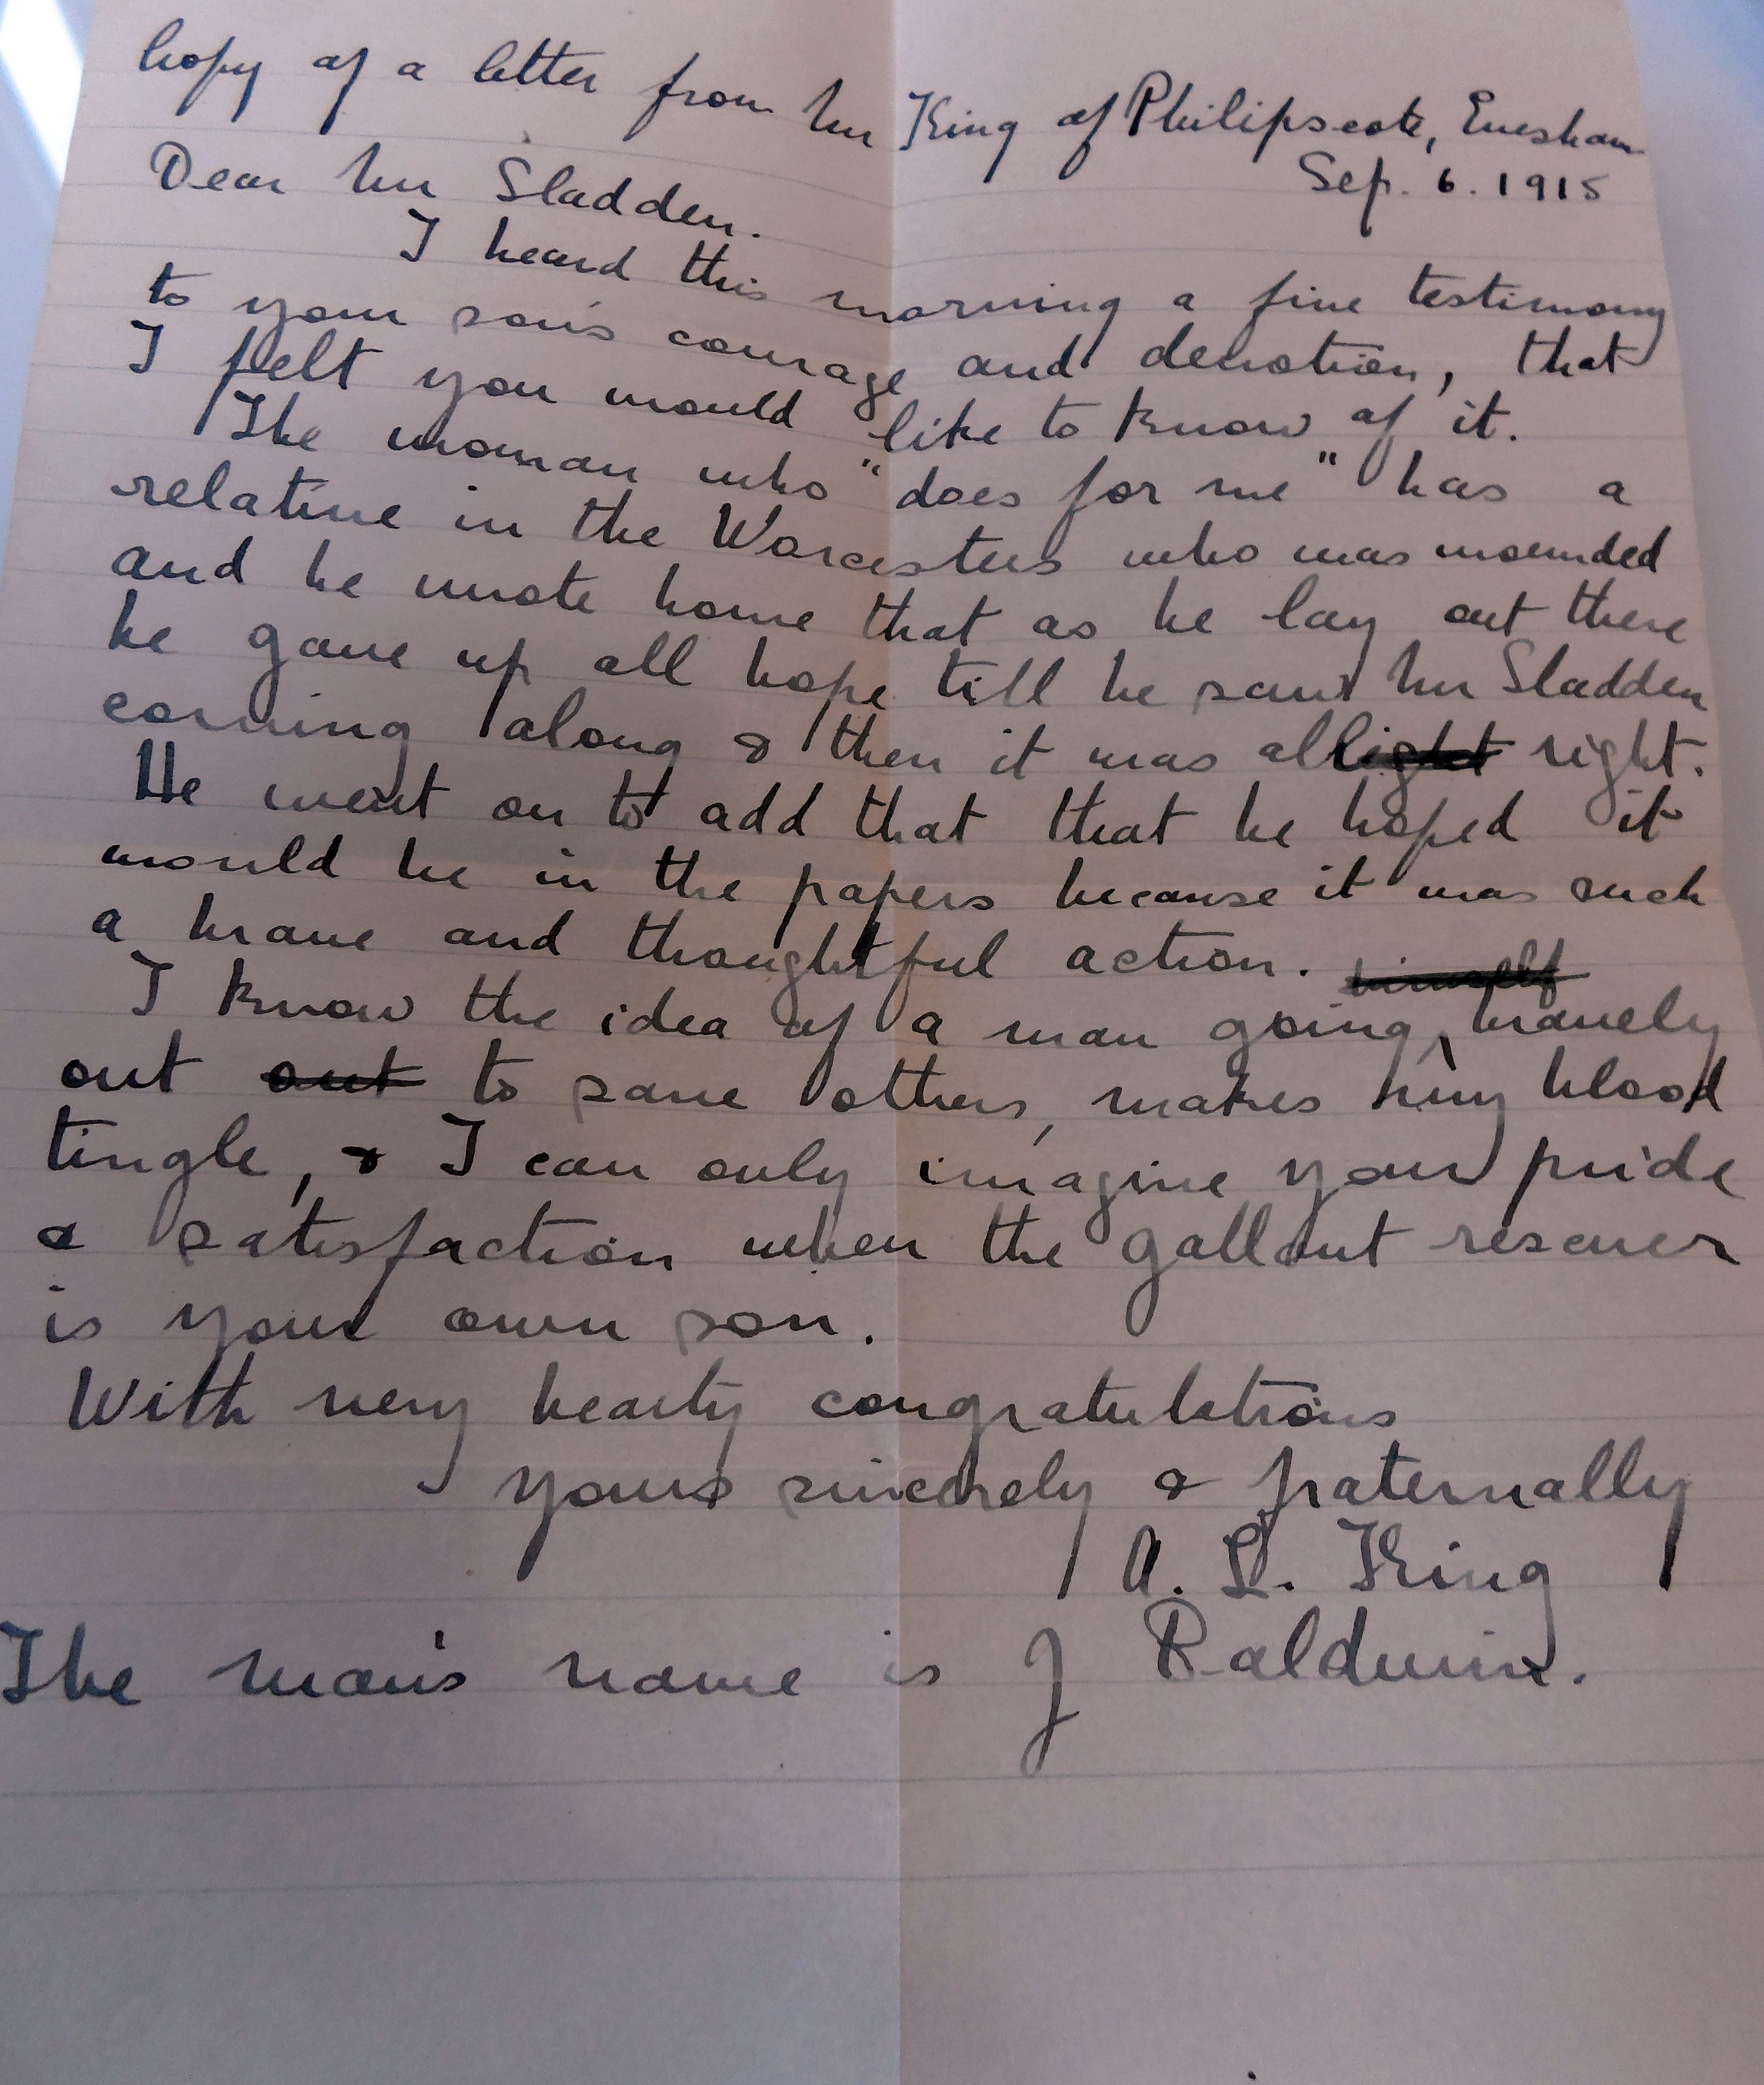 Copy of a letter from Mr King of Philipscote, Evesham
Sep. 6. 1915
Dear Mr Sladden.
I heard this morning a fine testimony
to your son's courage and devotion, that
I felt you would like to know of it.
The woman who "does for me" has a
relative in the Worcesters who was wounded
and he wrote home that as he lay out there
he gave up all hope till he saw Mr Sladden
coming along & then it was all right.
He went on to add that that he hoped it
would be in the papers because it was such
a brave and thoughtful action.
I know the idea of a man going himself bravely
out out to save others, makes my blood
tingle, & I can only imagine your pride
& satisfaction when the gallant rescuer
is your own son.
With very hearty congratulations
yours sincerely & fraternally
A. L. King
The man's name is J Baldwin.